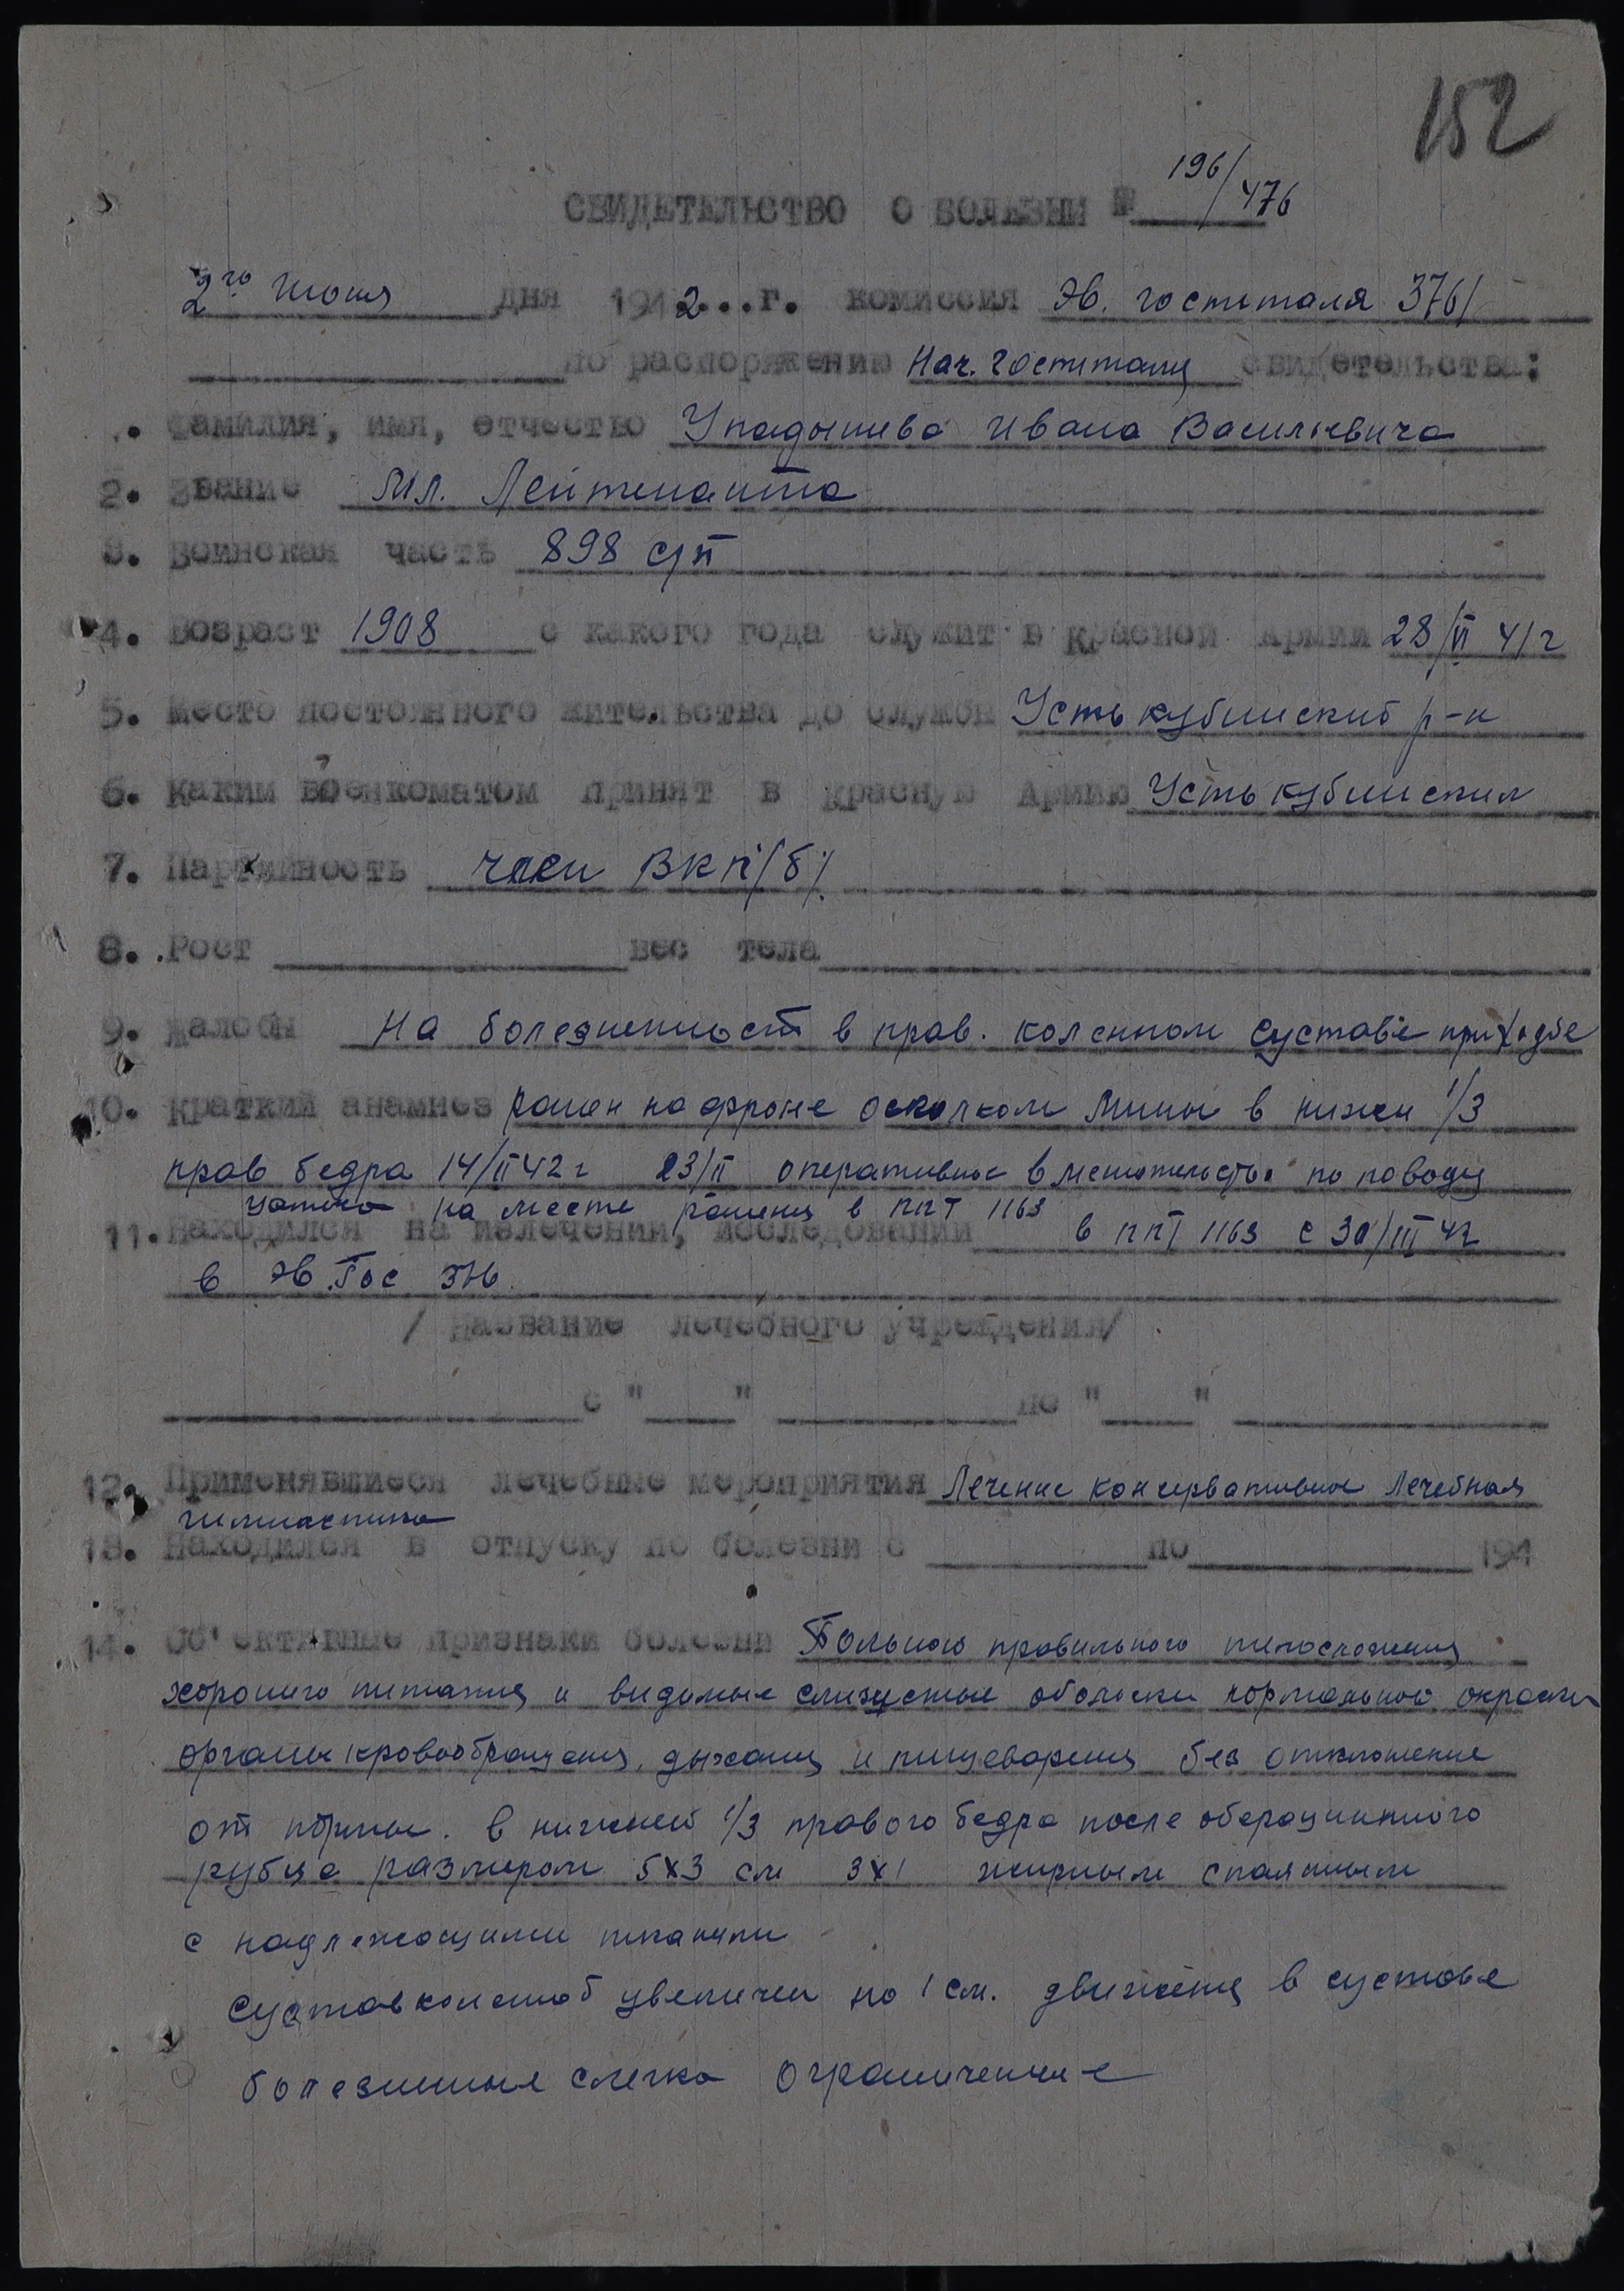 152
196/476
СВИДЕТЕЛЬСТВО О БОЛЕЗНИ №
2го июня дня 1942...г. комиссия Эв. госпиталя 3761
по распоряжению Нач. госпиталя свидетельства:
. Фамилия, имя, отчество Упадышева Ивана Васильевича
2. Звание Мл. Лейтенанта
3. Воинская часть 898 с/п
4. Возраст 1908 с какого года служит в Красной Армии 28/VI 41 г
5. Место постоянного жительства до службы Усть кубинский р-н
6. Каким военкоматом принят в Красную Армию Усть кубинским
7. Партийность член ВКП/б/
8. Рост вес тела
9. Жалобы На болезненность в прав. коленном суставе при ходьбе
10. Краткий анамнез ранен на фроне осколком мины в нижн 1/3
прав бедра 14/II 42 г 23/II оперативное вмешательство по поводу
на месте ранения в ППГ 1163
11. Находился на излечении, исследовании в ППГ 1163 с 30/III 42
в Эв. Гос
/ Название лечебного учреждения/
с " " по " "
12. Применявшиеся лечебные мероприятия Лечение консервативное Лечебная
гимнастика
13. Находился в отпуску по болезни с по 194
14. Об'ективные признаки болезни Больной правильного телосложения
хорошего питания и видимые слизистые оболочки нормальной окраски
органы кровообращения, дыхания и пищеварения без отклонение
от нормы. В нижней 1/3 правого бедра после оберационного
рубца размером 5х3 см 3х1 спаянным
с надлежащими тканями
Сустав коленной увеличен на 1 см. движения в суставе
болезненные слегка ограниченые